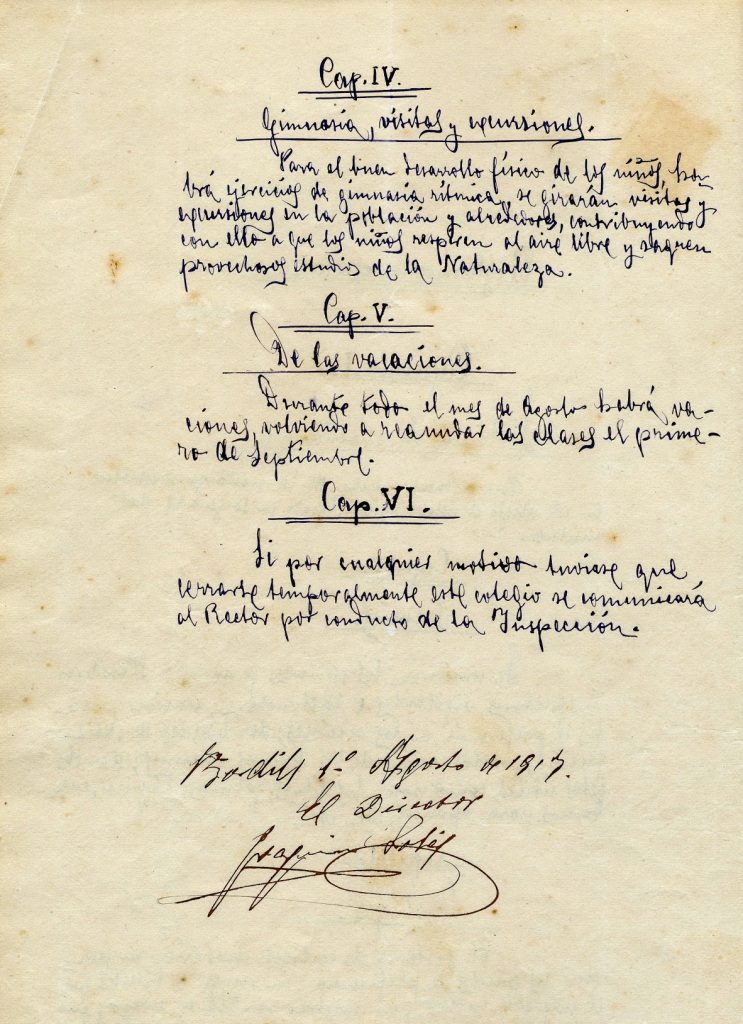 Cap. IV.
Gimnasia, visitas y excursiones.
Para el buen desarrollo físico de los niños, ha-
brá ejercicios de gimnasia rítmica, se girarán visitas y
excursiones en la población y alrededores, contribuyendo
con ello a que los niños respiren al aire libre y saquen
provechosos estudios de la Naturaleza.
Cap. V.
De las vacaciones.
Durante todo el mes de Agosto habrá va-
ciones, volviendo a reanudar las clases el prime-
ro de Septiembre.
Cap. VI.
Si por cualquier motivo tuviese que
cerrarse temporalmente este colegio se comunicará
al Rector por conducto de la Inspección.
Bordils 1º Agosto de 1917.
El Director
Joaquim